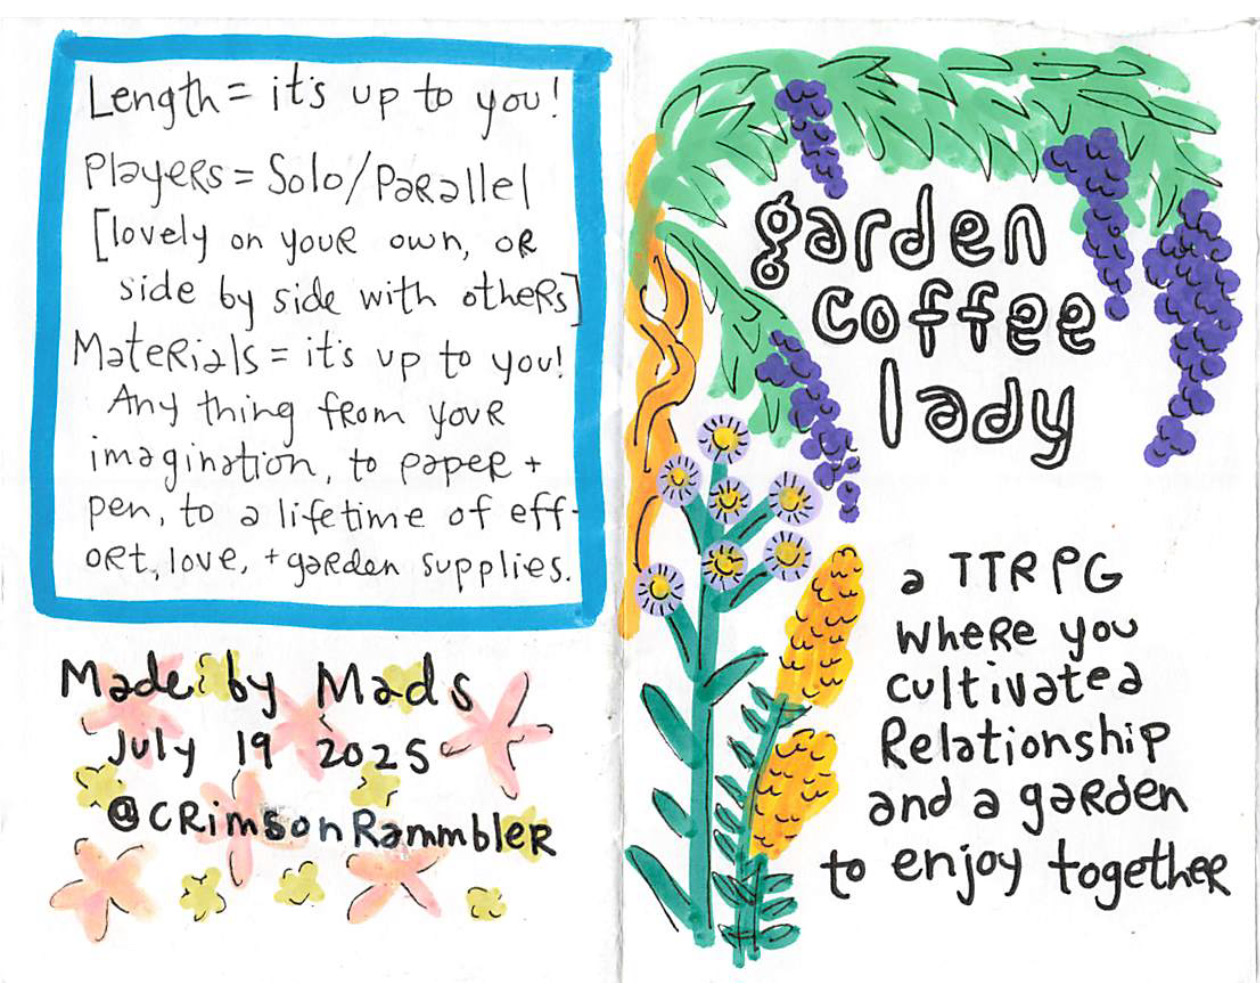 Length = it's up to you!
Players = Solo/Parallel
[lovely on your own, or
side by side with others]
Materials = it's up to you!
Any thing from your
imagination, to paper +
pen, to a lifetime of eff-
ort, love, + garden supplies.
Made by Mads
July 19 2025
@CRimsonRammbler
garden
coffee
lady
a TTRPG
where you
cultivate a
Relationship
and a garden
to enjoy together